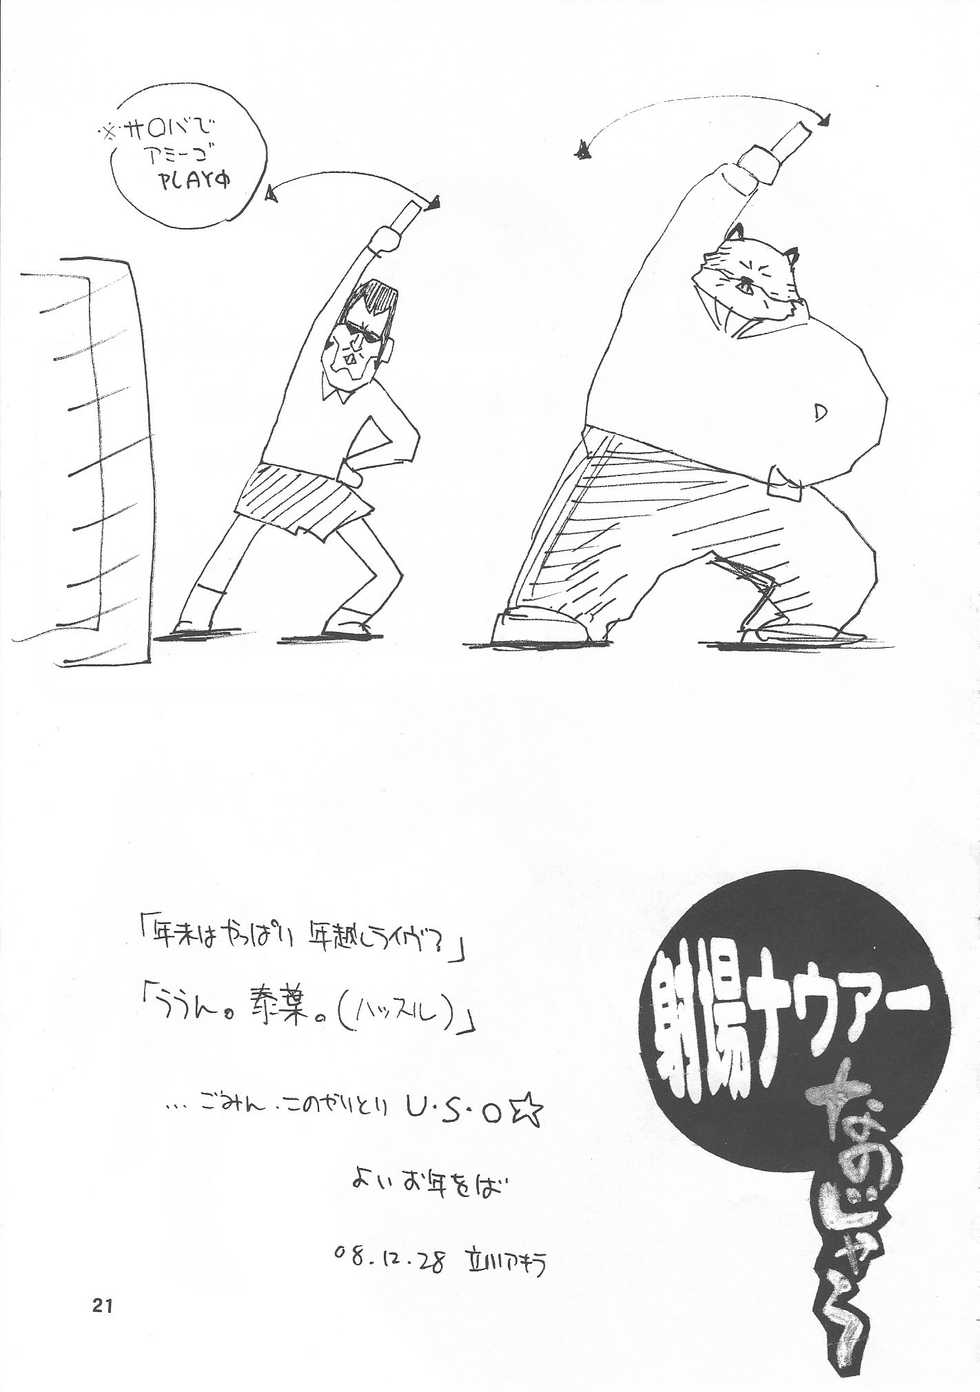 ※サロバで
アミーゴ
PLAYΦ
「年末はやっぱり年越しライヴ?」
「ううん。泰葉。(ハッスル)」
…ごみん.このやりとり U・S・O☆
よいお年をば
08.12.28 立川アキラ
射場ナウァー
なのじゃろ
21